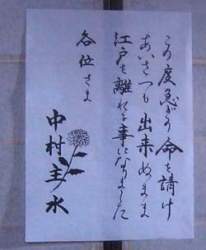 この度急ぎの命を請け
あいさつも出来ぬまま
江戸を離れる事になりました
各位さま
中村主水